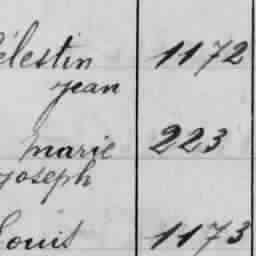 élestin 1172
jean
marie 223
joseph
Louis 1173